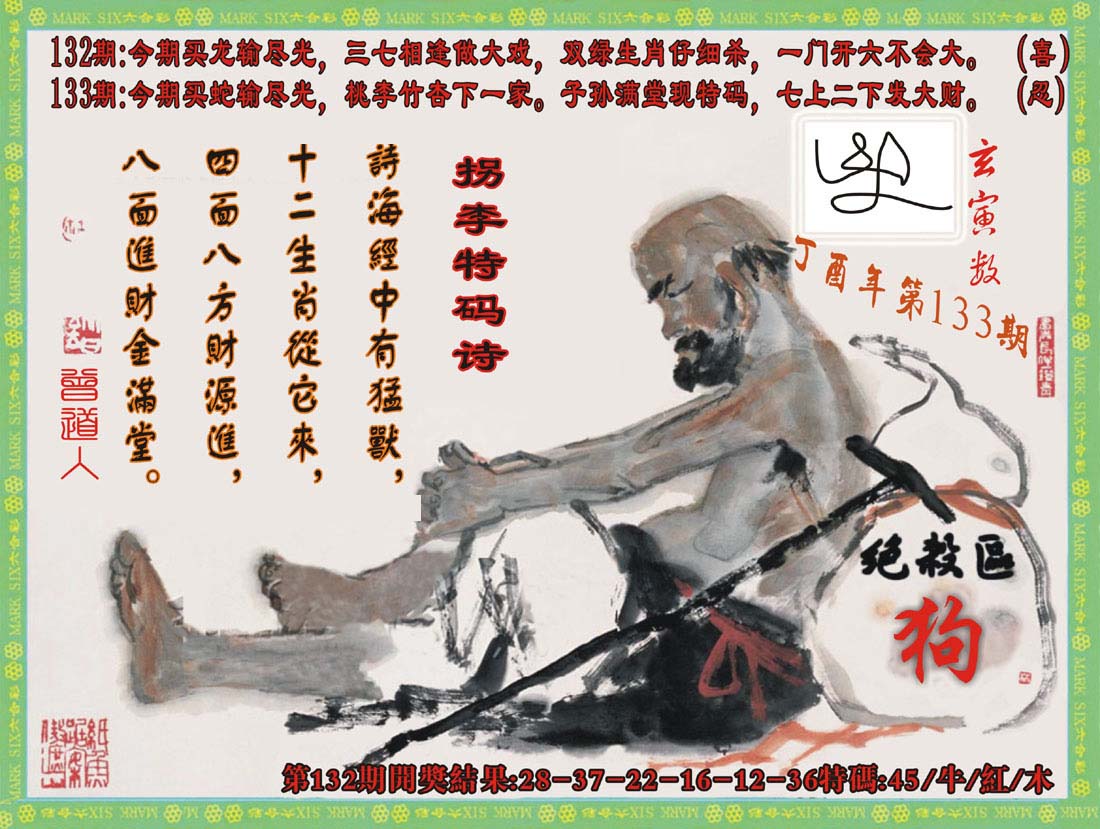 MARK SIX六合彩
132期:今期买龙输尽光，三七相逢做大戏，双绿生肖仔细杀，一门开六不会大。（喜）
133期:今期买蛇输尽光，桃李竹杏下一家。子孙满堂现特码，七上二下发大财。（忍）
玄寅数
丁酉年第133期
拐李特码诗
詩海經中有猛獸，
十二生肖從它來，
四面八方財源進，
八面進財金滿堂。
曾道人
绝殺區
狗
第132期開獎結果:28-37-22-16-12-36特碼:45/牛/紅/木